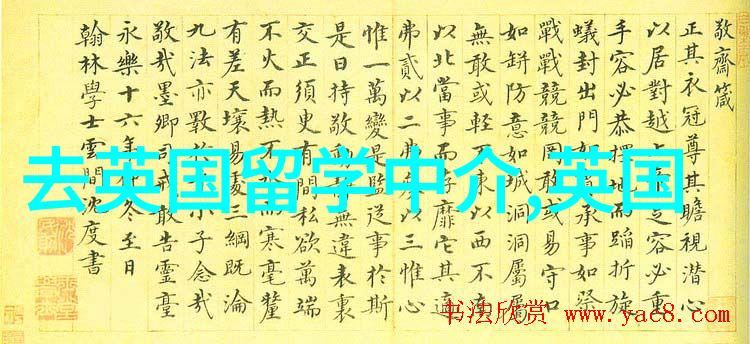 敬齋箴
正其衣冠尊其瞻視潛心
以居對越足容必重
手容必恭擇地而蹈折旋
蟻封出門如承事如祭
戰戰兢兢罔敢或易守口
如缾防意如城洞洞屬屬
無敢或輕不東以西不
以北當事而存靡它其適
弗貳以二弗以三惟心
惟一萬變是監從事於斯
是曰持敬無違表裏
交正須臾有間私欲萬端
不火而熱不而寒毫釐
有差天壤易處三綱既淪
九法亦斁於小子念哉
敬哉墨卿司戒敢告靈臺
永樂十六年冬至日
翰林學士雲間沈度書
去英国留学中介,英国
书法欣赏 www.yac8.com